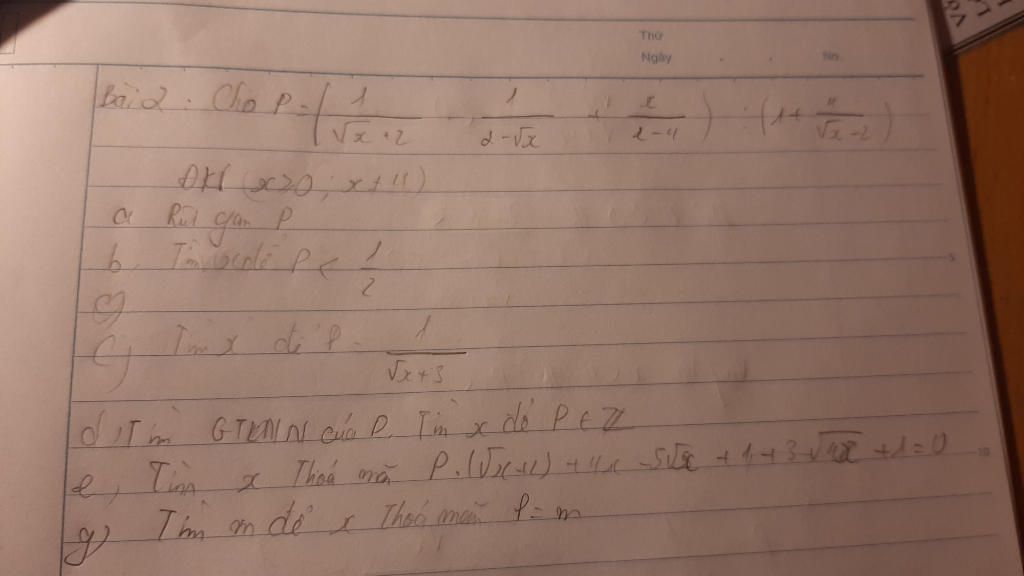 Thứ
Ngày No.
Bài 2. Cho P = ( 1/(√x + 2) - 1/(2 - √x) + x/(x - 4) ) : ( 1 + 4/(√x - 2) )
ĐK (x > 0 ; x ≠ 4)
a Rút gọn P
b, Tìm x để P < 1/2
c)
c) Tìm x để P = 1/(√x + 3)
d, Tìm GTNN của P. Tìm x để P ∈ Z
e, Tìm x thoả mãn P.(√x + 2) + 4x - 5√x + 1 + 3 + 1 = 0
g) Tìm m để x thoả mãn P = m